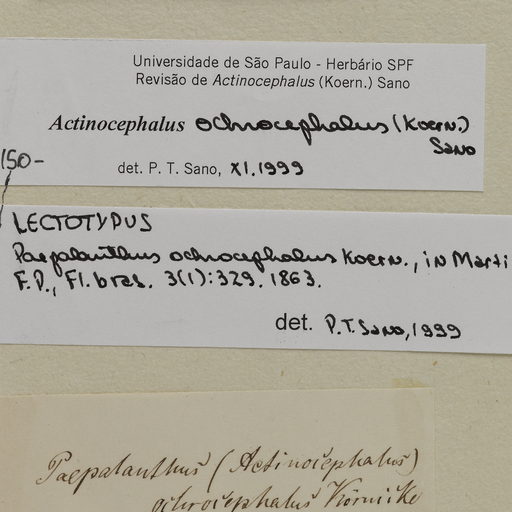 Universidade de São Paulo - Herbário SPF
Revisão de Actinocephalus (Koern.) Sano
Actinocephalus ochrocephalus (Koern.)
Sano
150-
det. P. T. Sano, XI.1999
LECTOTYPUS
Paepalanthus ochrocephalus Koern., in Marti
F.P., Fl. bras. 3(1):329. 1863.
det. P.T. Sano, 1999
Paepalanthus (Actinocephalus)
ochrocephalus Körnicke